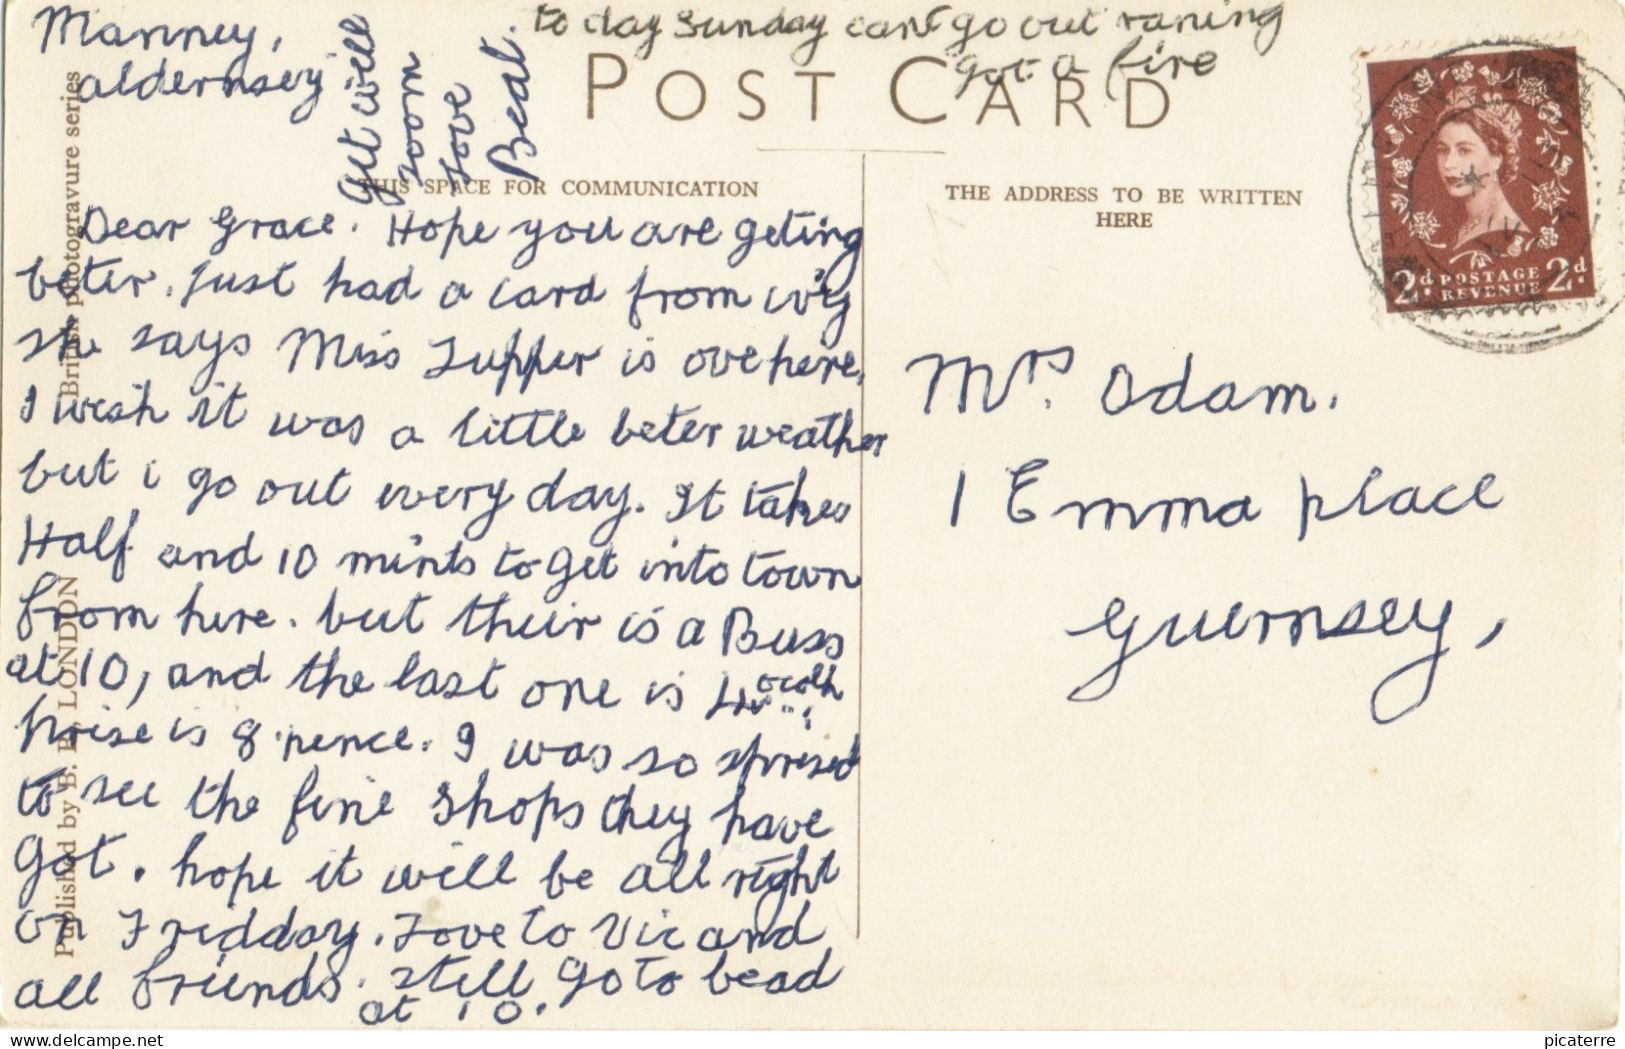 Manney,
aldernsey
Get will
soon
Love
Beat.
to day Sunday cant go out raning
got a fire
POST CARD
THIS SPACE FOR COMMUNICATION
THE ADDRESS TO BE WRITTEN
HERE
2d. POSTAGE 2d.
REVENUE
Dear Grace. Hope you are geting
beter. Just had a card from ivy
she says Miss Tupper is ove here.
I wish it was a little beter weather
but i go out every day. It takes
Half and 10 mints to get into town
from here. but their is a Buss
at 10, and the last one is 4 oclh
prise is 8 pence. I was so spresed
to see the fine shops they have
Got. hope it will be all right
on Fridday. Love to Vic and
all friends. still go to bead
at 10.
Mrs. Odam.
1 Emma place
Guernsey,
British photogravure series
Published by B. B. LONDON
picaterre